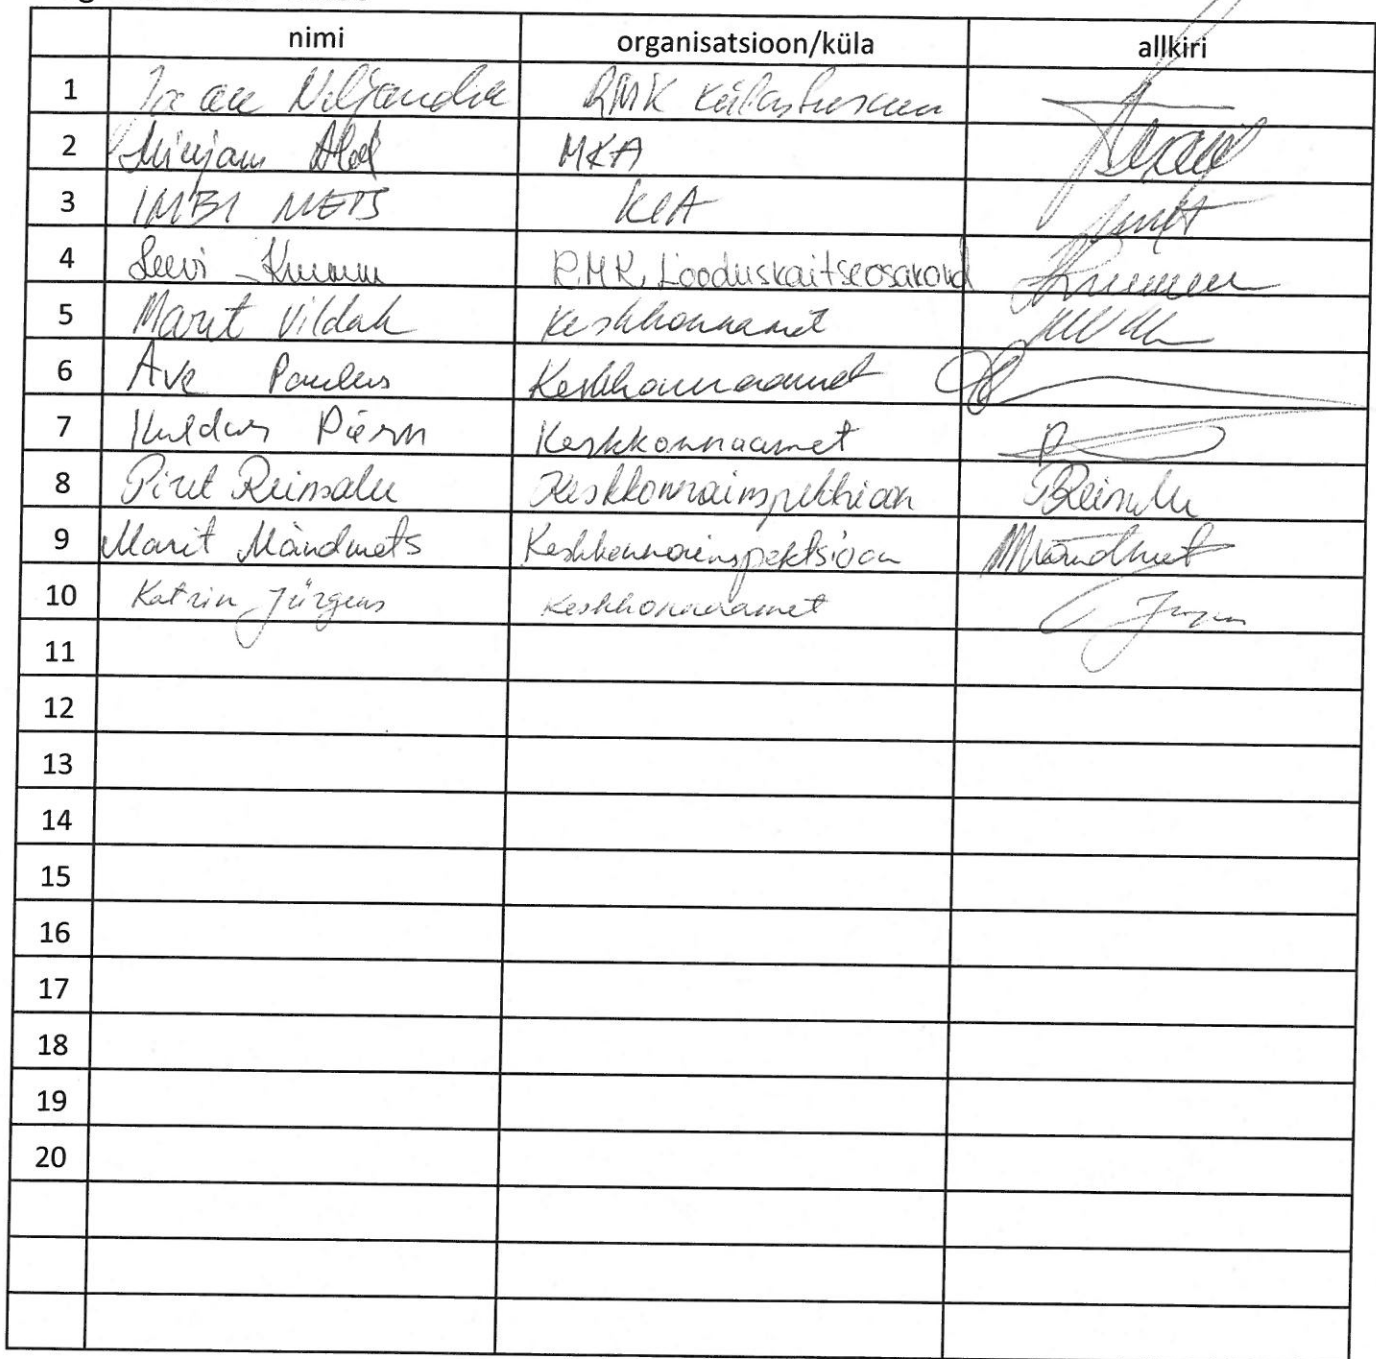 nimi organisatsioon/küla allkiri
1 Viljandi RMK
2 Mirjam Abel MKA
3 IMBI METS KIA
4 Leevi Krumm RMK Looduskaitseosakond
5 Marit Vildak Keskkonnaamet
6 Ave Paulus Keskkonnaamet
7 Kuldar Pärn Keskkonnaamet
8 Piret Reinsalu Keskkonnainspektsioon PReinsalu
9 Marit Mändmets Keskkonnainspektsioon MMändmets
10 Katrin Jürgens Keskkonnaamet
11
12
13
14
15
16
17
18
19
20